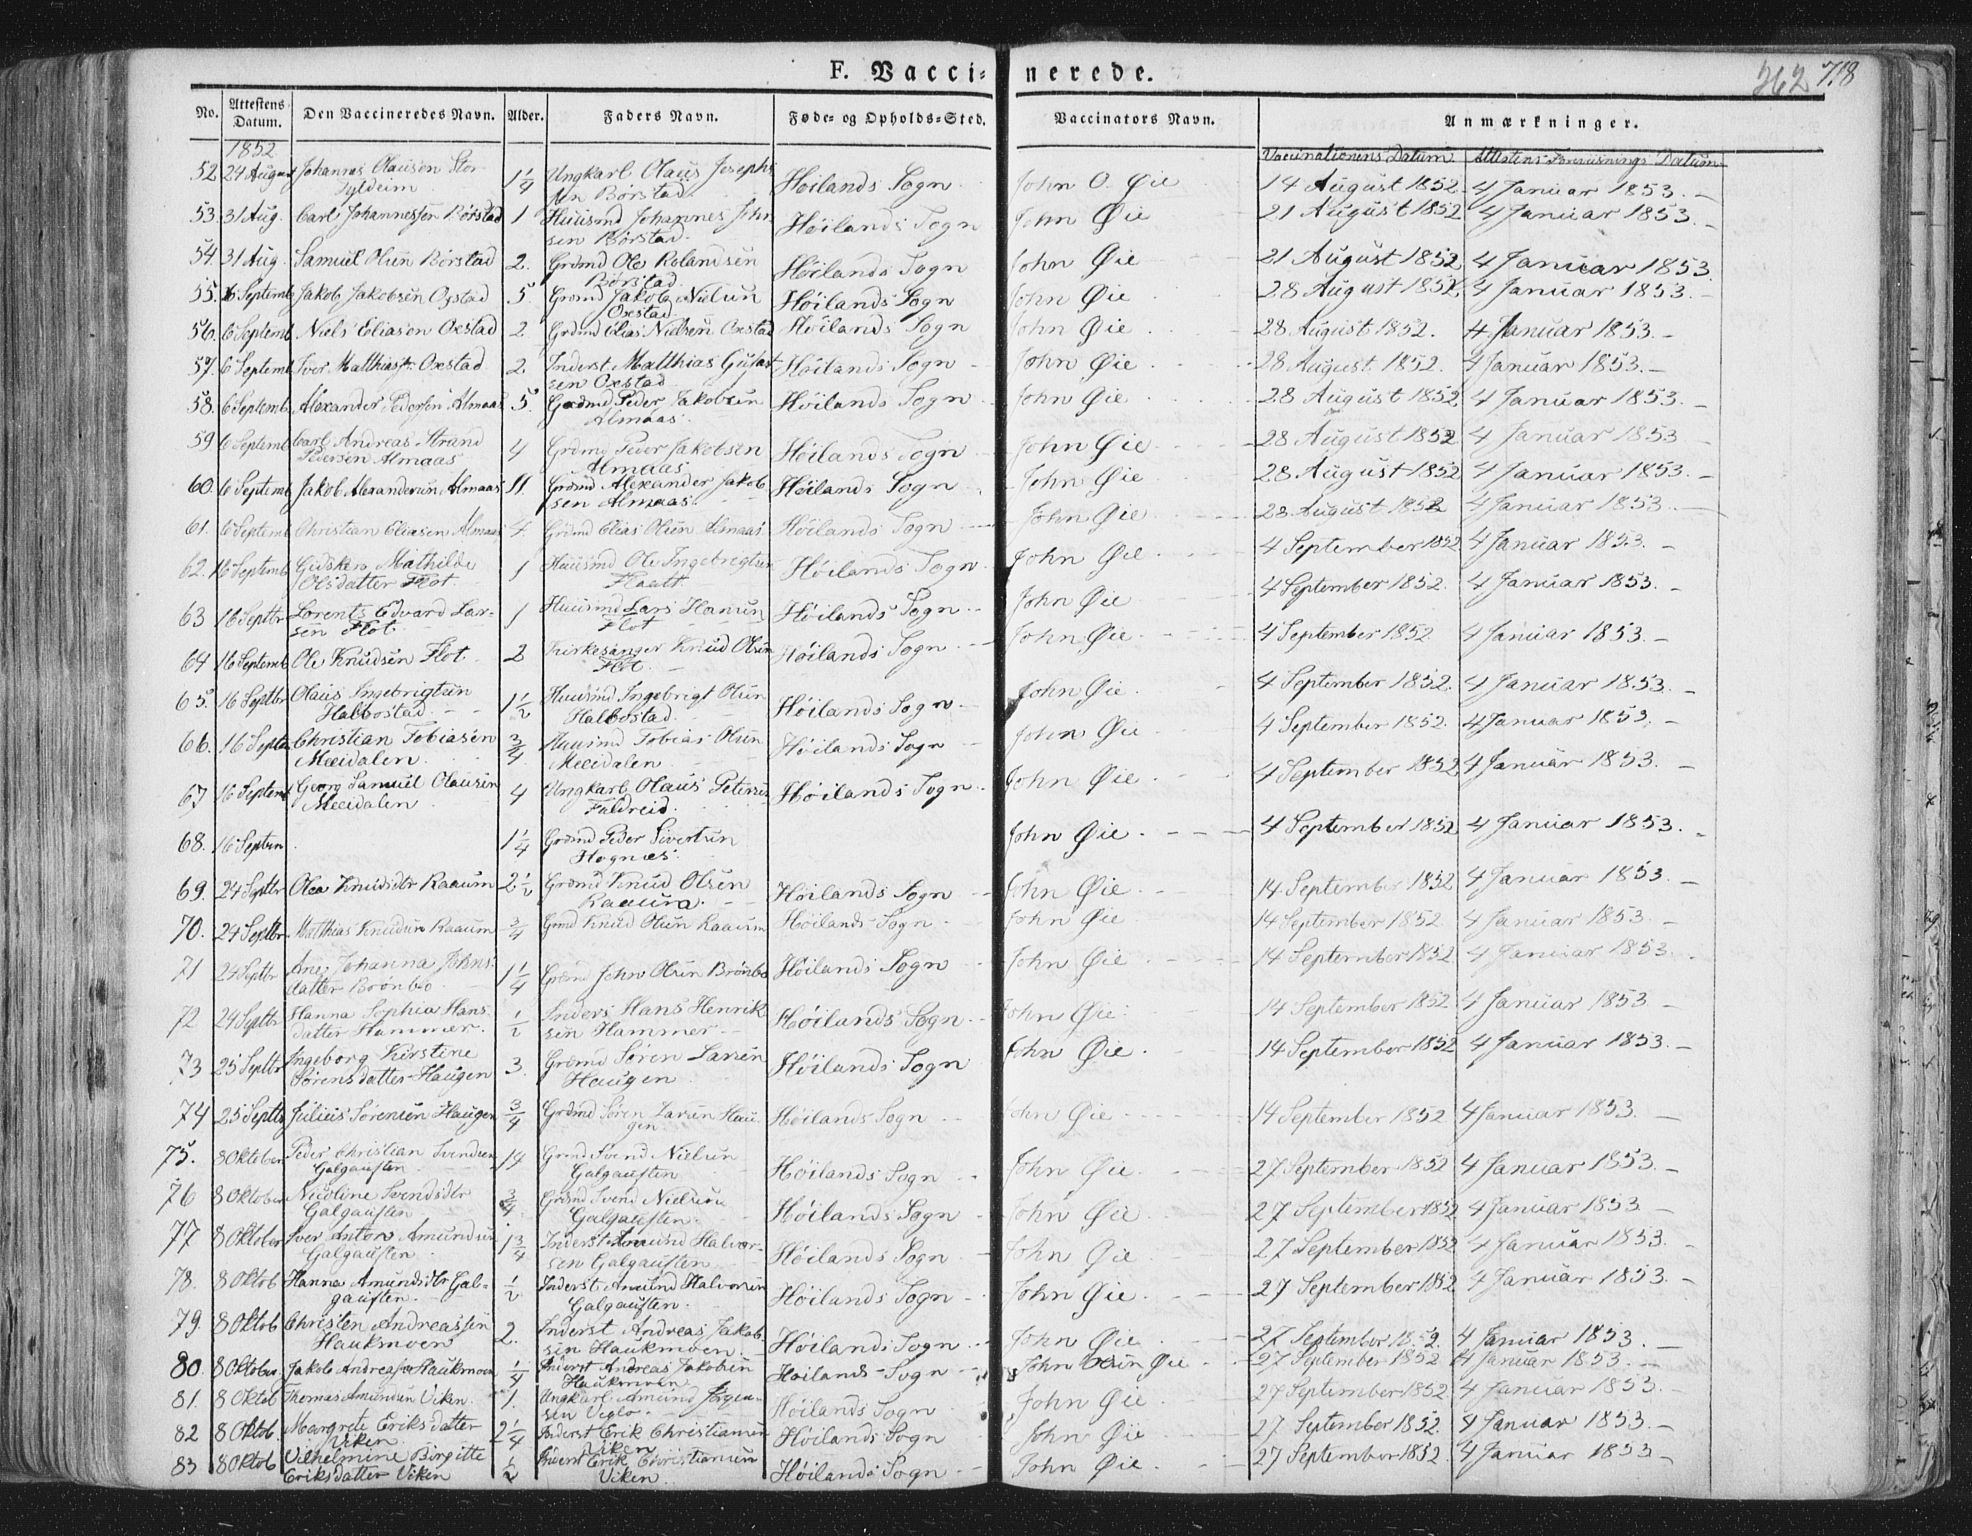 F. Vaccinerede.
262 718
No. Attestens Datum. Den Vaccineredes Navn. Alder. Faders Navn. Føde- og Opholds-Sted. Vaccinators Navn. Anmærkninger.
1852
Vaccinationens Datum Attestens Datum
52 24 August Johannes Olausen Stor 1 1/4 Ungkarl Olaus Josephs Høilands Sogn John O. Øie 14 August 1852 4 Januar 1853.
Fyldeim sen Børstad
53. 31 Aug. Carl Johannessen Børstad 1 Huusmd Johannes John Høilands Sogn John Øie 21 August 1852 4 Januar 1853.
sen Børstad
54 31 Aug. Samuel Olsen Børstad 2. Grdmd Ole Rolandsen Høilands Sogn John Øie 21 August 1852 4 Januar 1853
Børstad
55. 6 Septemb Jakob Jakobsen Oxstad 5 Grdmd Jakob Nielsen Høilands Sogn John Øie 28 August 1852. 4 Januar 1853.
Oxstad
56. 6 Septemb Niels Eliasen Oxstad 2 Grdmd Elias Nielsen Oxstad Høilands Sogn John Øie 28 August 1852. 4 Januar 1853.
57. 6 Septemb Iver Matthiass. Oxstad 2. Inderst Matthias Gustav Høilands Sogn John Øie 28 August. 1852. 4 Januar 1853.
sen Oxstad
58. 6 Septemb Alexander Pedersen Almaas 5. Grdmd Peder Jakobsen Høilands Sogn John Øie 28 August 1852 4 Januar 1853.
Almaas
59 6 Septemb Carl Andreas Strand 4 Grdmd Peder Jakobsen Høilands Sogn John Øie 28 August 1852 4 Januar 1853
Pedersen Almaas Almaas
60. 6 Septemb Jakob Alexandersen Almaas 11 Grdmd Alexander Jakob Høilands Sogn John Øie 28 August 1852 4 Januar 1853.
sen Almaas
61. 6 Septemb Christian Eliasen Almaas 4 Grdmd Elias Olsen Almaas Høilands Sogn John Øie 28 August 1852 4 Januar 1853.
62. 16 Septemb Gidsken Mathilde 1 Huusmd Ole Ingebrigtsen Høilands Sogn John Øie 4 September 1852 4 Januar 1853.
Olsdatter Flot Flaatt
63 16 Septbr Lorents Edvard Lar- 1 Huusmd Lars Hansen Høilands Sogn John Øie 4 September 1852. 4 Januar 1853.
sen Flot Flot
64 16 Septemb Ole Knudsen Flot 2 Kirkesanger Knud Olsen Høilands Sogn John Øie 4 September 1852 4 Januar 1853.
Flot
65. 16 Septbr Olaus Ingebrigtsen 1 1/2 Huusmd Ingebrigt Olsen Høilands Sogn John Øie 4 September 1852. 4 Januar 1853.
Halbostad Halbostad
66. 16 Septbr Christian Tobiasen 3/4 Huusmd Tobias Olsen Høilands Sogn John Øie 4 September 1852. 4 Januar 1853.
Meeidalen Meeidalen
67 16 Septemb Georg Samuel Olausen 4 Ungkarl Olaus Petersen Høilands Sogn John Øie 4 September 1852 4 Januar 1853.
Meeidalen Fuldreid
68. 16 Septbr 1 1/4 Grdmd Peder Sivertsen John Øie 4 September 1852 4 Januar 1853.
Hognæs
69. 24 Septbr Olea Knudsdtr Raaum 2 1/2 Grdmd Knud Olsen Høilands Sogn John Øie 14 September 1852 4 Januar 1853.
Raaum
70. 24 Septbr Matthias Knudsen Raaum 3/4 Grmd Knud Olsen Raaum Høilands Sogn John Øie 14 September 1852. 4 Januar 1853.
71 24 Septbr Ane Johanna Johns- 1 1/4 Grdmd John Olsen Brønbo Høilands Sogn John Øie 14 September 1852. 4 Januar 1853.
datter Brønbo
72 24 Septbr Hanna Sophia Hans- 1/2 Inders Hans Henrik- Høilands Sogn John Øie 14 September 1852 4 Januar 1853
datter Hammer sen Hammer
73 25 Septbr Ingeborg Kirstine 3. Grdmd Søren Larsen Høilands Sogn John Øie 14 September 1852 4 Januar 1853.
Sørensdatter Haugen Haugen
74 25 Septbr Julius Sørensen Haugen 3/4 Grdmd Søren Larsen Hau- Høilands Sogn John Øie 14 September 1852 4 Januar 1853.
gen
75. 8 Oktober Peder Christian Svendsen 14 Grmd Svend Nielsen Høilands Sogn John Øie 27 September 1852 4 Januar 1853.
Galgauften Galgauften
76 8 Oktober Nicoline Svendsdtr 3/4 Grdmd Svend Nielsen Høilands Sogn John Øie 27 September 1852 4 Januar 1853.
Galgauften Galgauften
77 8 Oktober Iver Anton Amundsen 1 3/4 Inderst Amund Halvor- Høilands Sogn John Øie 27 September 1852 4 Januar 1853.
Galgauften sen Galgauften
78. 8 Oktob Hanna Amundsdtr Gal- 1/2 Inderst Amund Halvorsen Høilands Sogn John Øie 27 September 1852 4 Januar 1853.
gauften Galgauften
79. 8 Oktob Christen Andreassen 2. Inderst Andreas Jakob- Høilands Sogn John Øie 27 September 1852. 4 Januar 1853.
Haukmoen sen Haukmoen
80 8 Oktober Jakob Andreassen Haukmoen 1/4 Inderst Andreas Jakobsen Høilands Sogn John Olsen Øie 27 September 1852 4 Januar 1853.
Haukmoen
81. 8 Oktob Thomas Amundsen Viken 1. Ungkarl Amund Jørgen- Høilands Sogn John Øie 27 September 1852. 4 Januar 1853.
sen
82 8 Oktob. Margrete Eriksdatter 2 1/4 Inderst Erik Christiansen Høilands Sogn John Øie 27 September 1852. 4 Januar 1853.
Viken Viken
83 8 Oktob Vilhelmine Birgitte 1/2 Inderst Erik Christiansen Høilands Sogn John Øie 27 September 1852. 4 Januar 1853
Eriksdatter Viken Viken